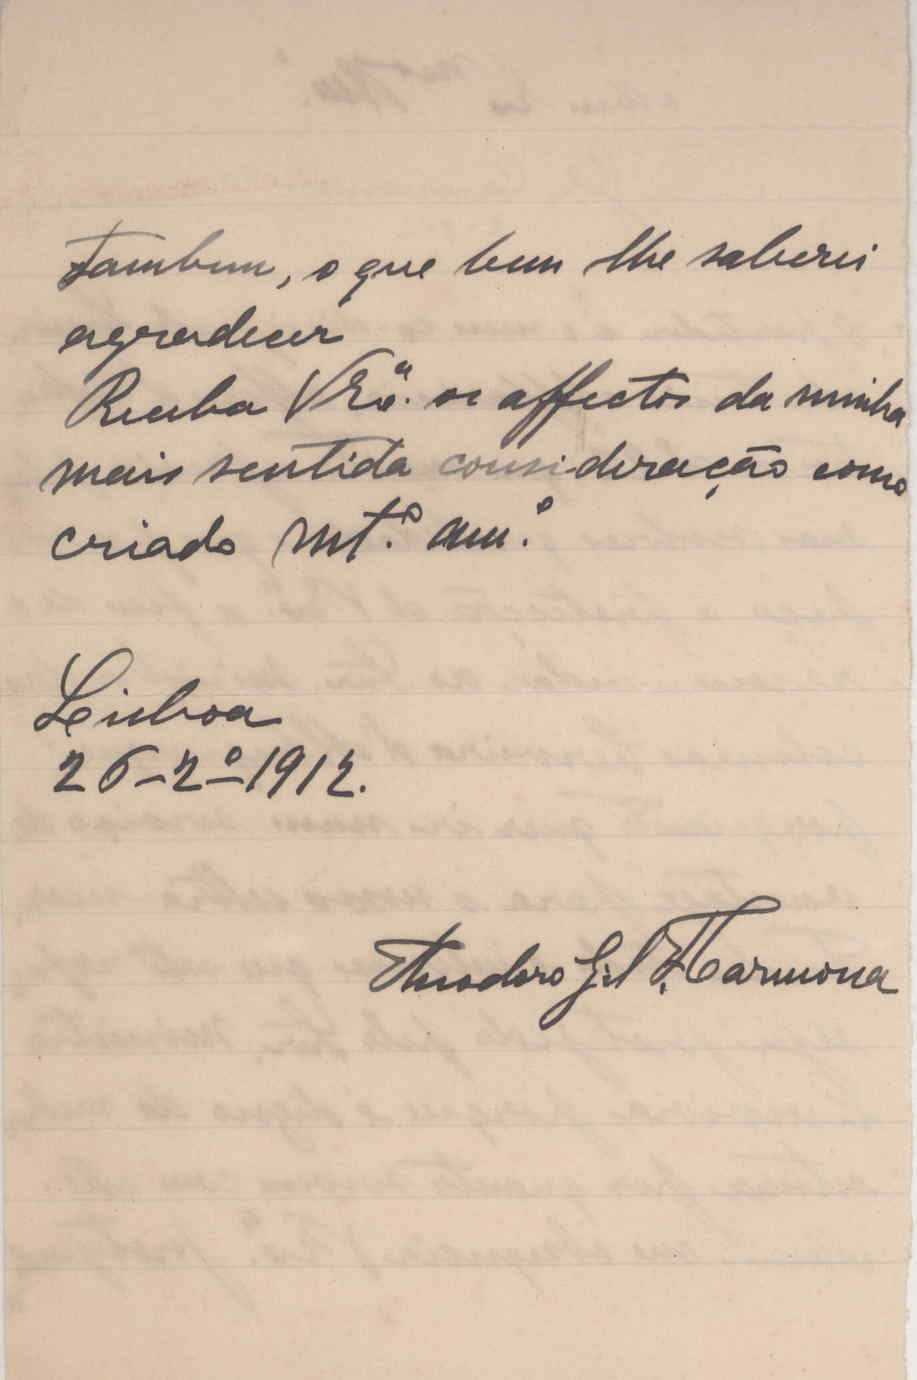 tambem, o que bem lhe saberei
agradecer
Receba V Exª. os affectos da minha
mais sentida consideração como
criado Mt.º am.º
Lisboa
26-2º-1912.
Theodoro Gil F. Carmona